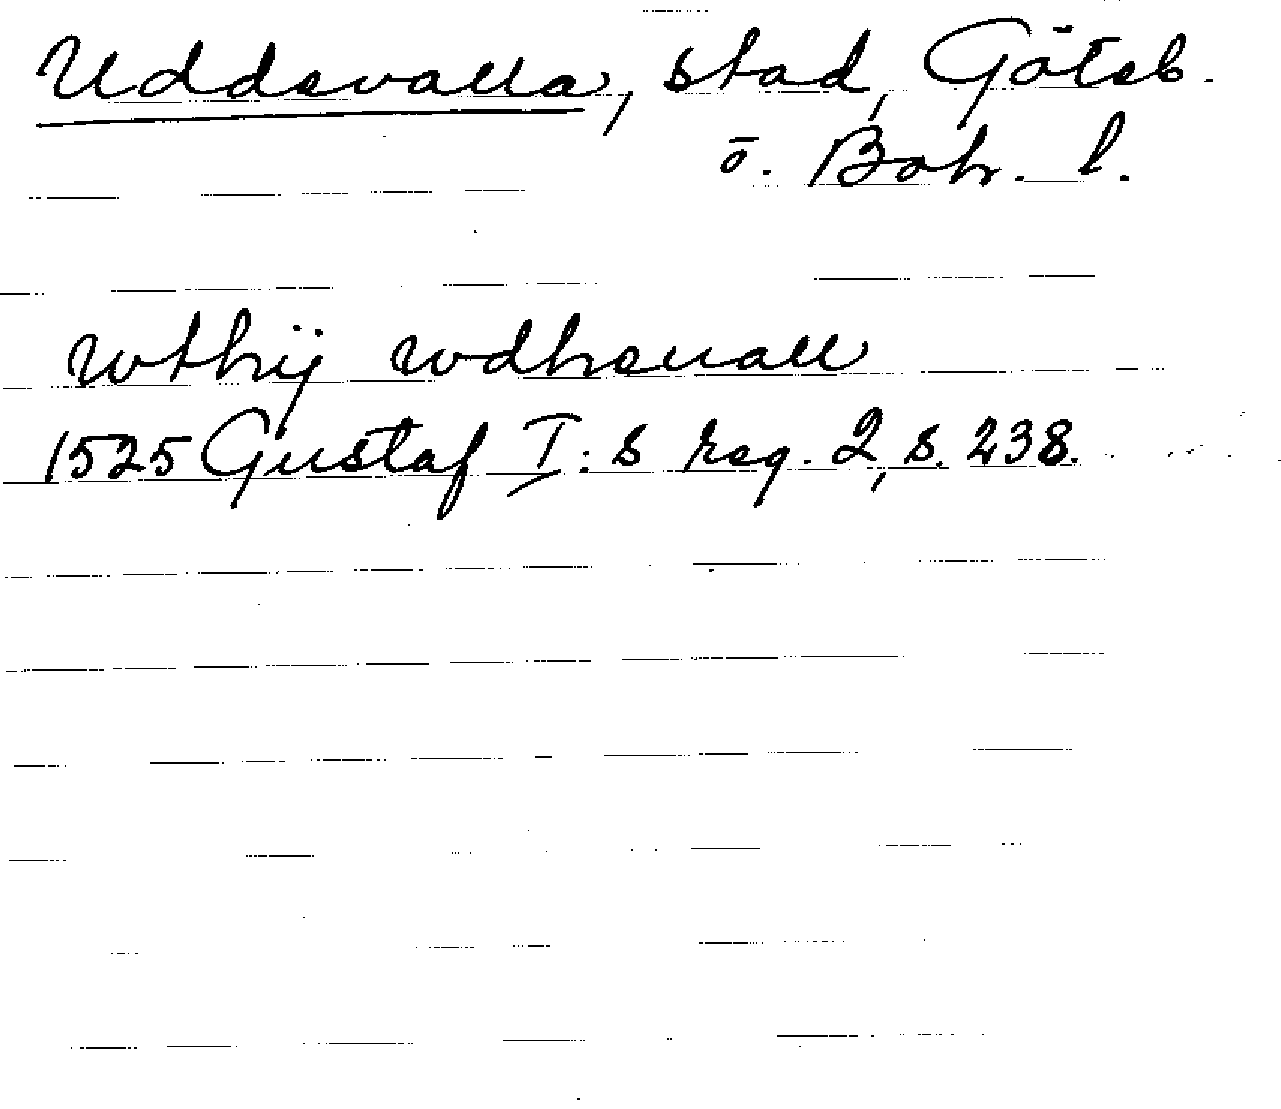 Uddevalla, stad, Göteb.
o. Boh. l.
wthij wdheuall
1525 Gustaf I:s reg. 2, s. 238.